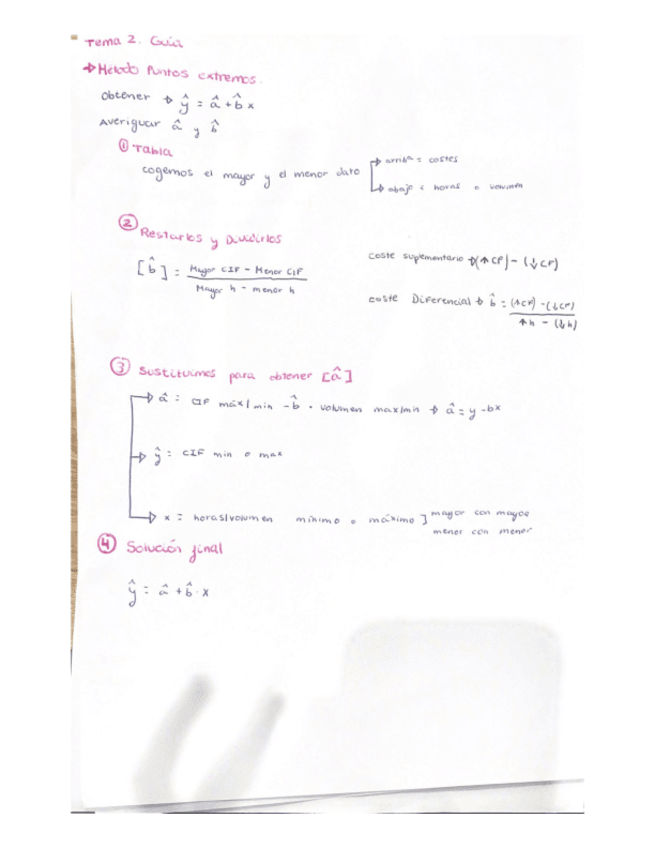 Tema 2. Guía
→ Metodo Puntos extremos.
Obtener → ŷ = â + b̂ x
Averiguar â y b̂
① Tabla
cogemos el mayor y el menor dato
arriba = costes
abajo = horas o volumen
② Restarlos y Dividirlos
[b̂] = Mayor CIF - Menor CIF
Mayor h - menor h
coste suplementario → (↑CF) - (↓CF)
coste Diferencial → b̂ = (↑CF) - (↓CF)
↑h - (↓h)
③ Sustituimos para obtener [â]
→ â = CIF máx/min - b̂ · volumen max/min → â = y - bx
→ ŷ = CIF min o max
→ x = horas/volumen mínimo o máximo ] mayor con mayor
menor con menor
④ Solución final
ŷ = â + b̂ · x